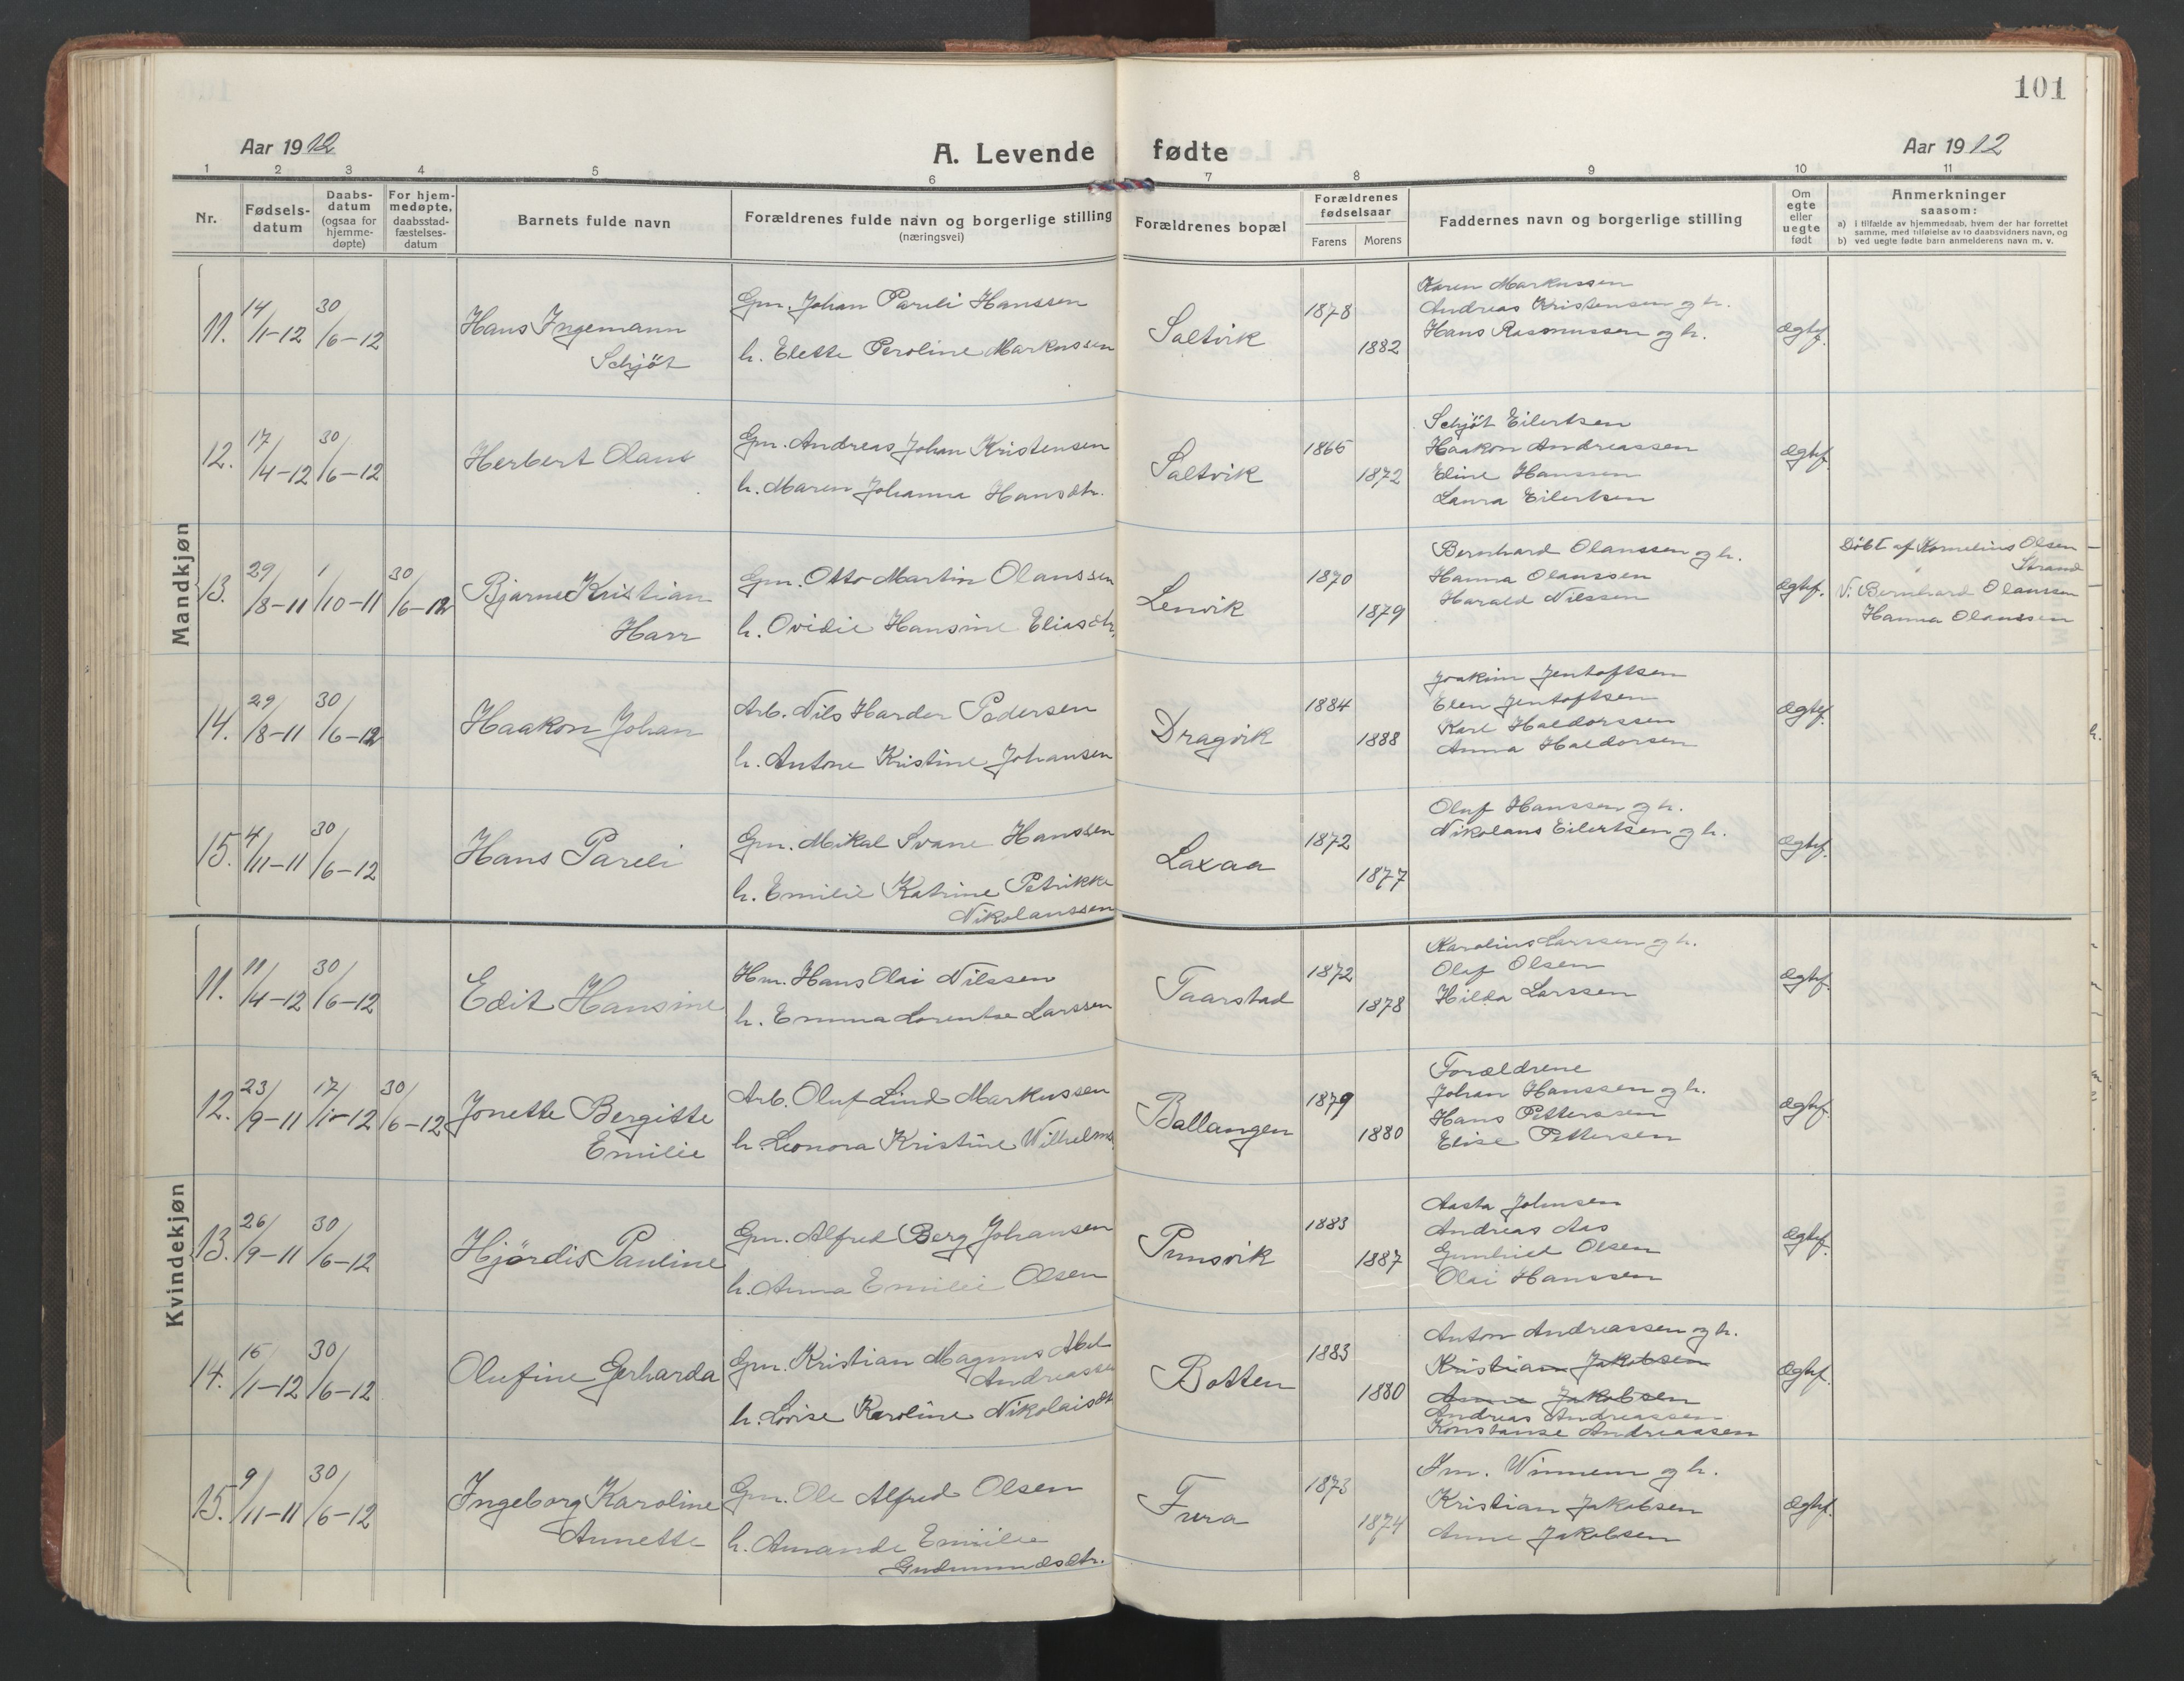 101
Aar 1912
A. Levende fødte
Aar 1912
1 2 3 4 5 6 7 8 9 10 11
Nr.
Fødsels-
datum
Daabs-
datum
(ogsaa for
hjemme-
døpte)
For hjem-
medøpte,
daabsstad-
fæstelses-
datum
Barnets fulde navn
Forældrenes fulde navn og borgerlige stilling
(næringsvei)
Forældrenes bopæl
Forældrenes
fødselsaar
Farens Morens
Faddernes navn og borgerlige stilling
Om
egte
eller
uegte
født
Anmerkninger
saasom:
a) i tilfælde av hjemmedaab, hvem der har forrettet
samme, med tilføielse av to daabsvidners navn, og
b) ved uegte fødte barn anmelderens navn m. v.
Mandkjøn
11. 14/11-12 30/6-12
Hans Ingemann
Schjöt
Gm. Johan Pareli Hanssen
h. Elette Peroline Markussen
Saltvik
1878
1882
Karen Markussen
Andreas Kristensen og h.
Hans Rasmussen og h.
Ægtef.
12. 17/4-12 30/6-12
Herbert Olaus
Gm. Andreas Johan Kristensen
h. Maren Johanna Hansdtr.
Saltvik
1865
1872
Schjöt Eilertsen
Haakon Andreassen
Eline Hanssen
Laura Eilertsen
Ægtef.
13. 29/8-11 1/10-11 30/6-12
Bjarne Kristian
Harr
Gm. Otto Martin Olaussen
h. Ovidie Hansine Eliasdtr.
Lenvik
1870
1879
Bernhard Olaussen og h.
Hanna Olaussen
Harald Nilssen
Ægtef.
Döbt af Kornelius Olsen
Strand
V: Bernhard Olaussen
Hanna Olaussen
14. 29/8-11 30/6-12
Haakon Johan
Arb. Nils Harder Pedersen
h. Antone Kristine Johansen
Dragvik
1884
1888
Joakim Jentoftsen
Elen Jentoftsen
Karl Haldorssen
Anna Haldorsen
Ægtef.
15. 4/11-11 30/6-12
Hans Pareli
Gm. Mikal Svane Hanssen
h. Emilie Katrine Petrikke
Nikolaussen
Laxaa
1872
1877
Oluf Hanssen og h.
Nikolaus Eilertsen og h.
Ægtef.
Kvindekjøn
11. 11/4-12 30/6-12
Edit Hansine
Hm. Hans Olai Nilssen
h. Emma Lorentse Larssen
Taarstad
1872
1878
Karolius Larssen og h.
Olaf Olsen
Hilda Larssen
Ægtef.
12. 23/9-11 17/1-12 30/6-12
Jonette Bergitte
Emilie
Arb. Oluf Lind Markussen
h. Leonora Kristine Wilhelms.
Ballangen
1879
1880
Forældrene
Johan Hanssen og h.
Hans Pettersen
Elise Pettersen
Ægtef.
13. 26/9-11 30/6-12
Hjördis Pauline
Gm. Alfred Berg Johansen
h. Anna Emilie Olsen
Punsvik
1883
1887
Aasta Johnsen
Andreas Aas
Gunhild Olsen
Olai Hanssen
Ægtef.
14. 16/1-12 30/6-12
Olufine Gerharda
Gm. Kristian Magnus Abel
Andreassen
h. Lovise Karoline Nikolaisdt
Botten
1883
1880
Anton Andreassen og h.
Kristian Jakobsen
Anne Jakobsen
Andreas Andreassen
Konstanse Andreassen
Ægtef.
15. 9/11-11 30/6-12
Ingeborg Karoline
Annette
Gm. Ole Alfred Olsen
h. Amande Emilie
Gudmundsdtr.
Fura
1873
1874
Winnem og h.
Kristian Jakobsen
Anne Jakobsen
Ægtef.